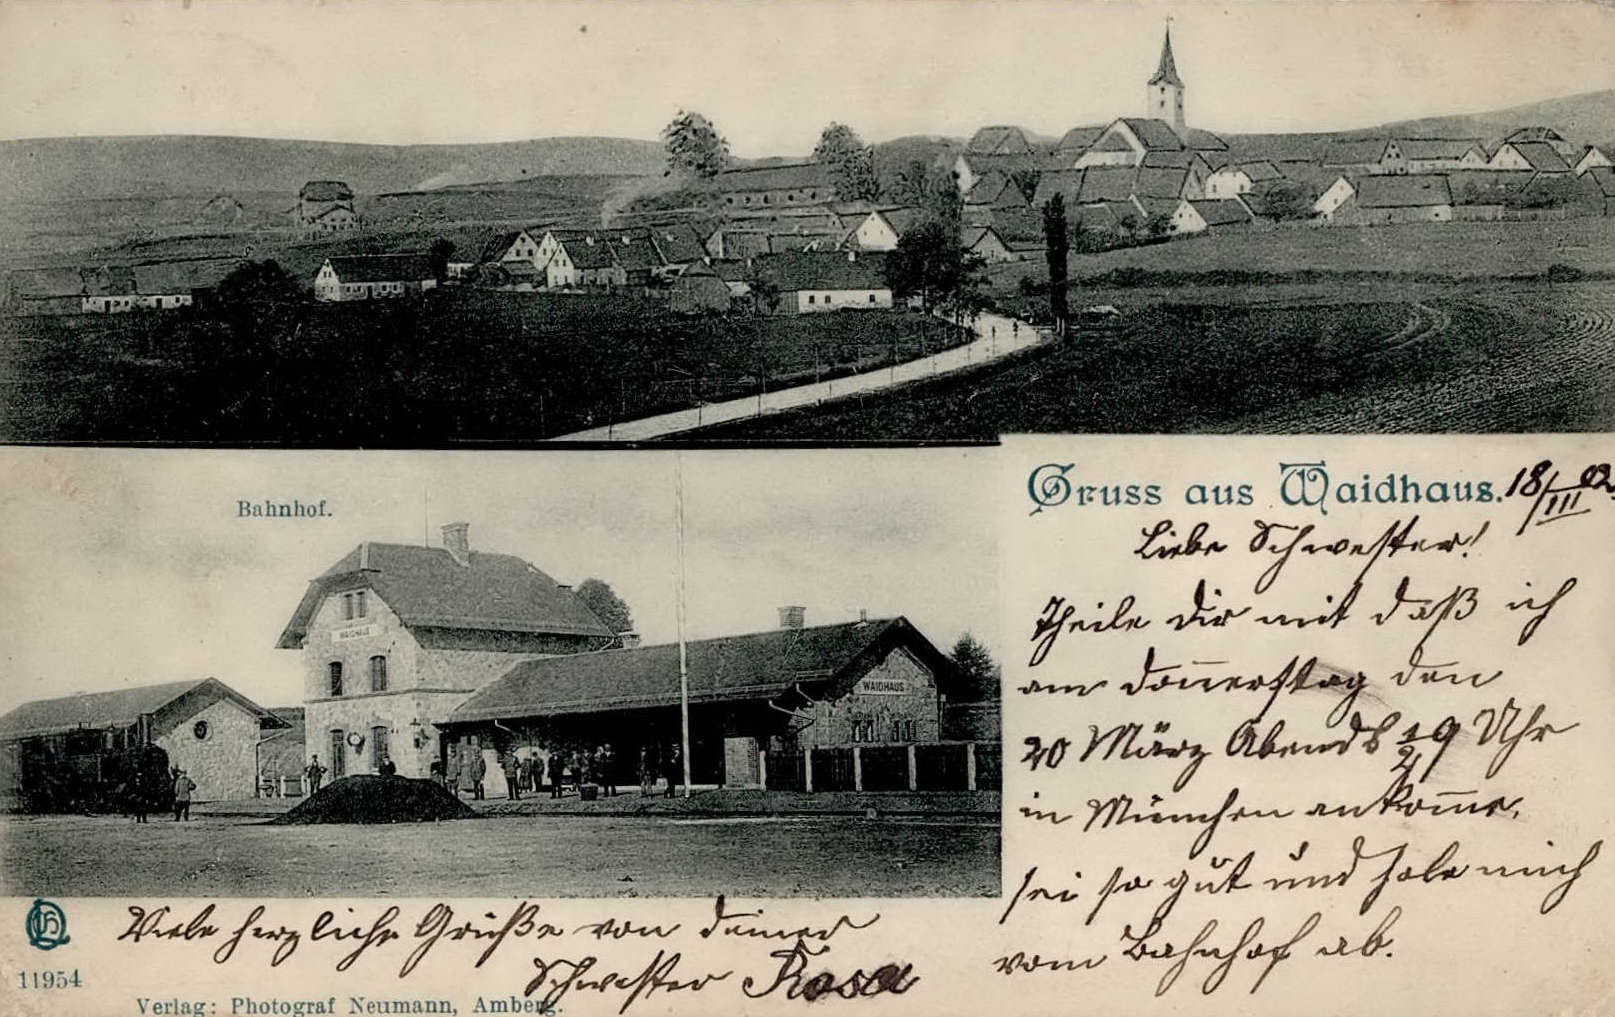 Bahnhof.
WAIDHAUS
WAIDHAUS
Gruss aus Waidhaus. 18/III 02.
Liebe Schwester!
Theile dir mit daß ich
am Donnerstag den
20 März Abends 1/2 9 Uhr
in München ankom̅e,
sei so gut und hole mich
vom Bahnhof ab.
Viele herzliche Grüße von deiner
Schwester Rosa
11954
Verlag: Photograf Neumann, Amberg.